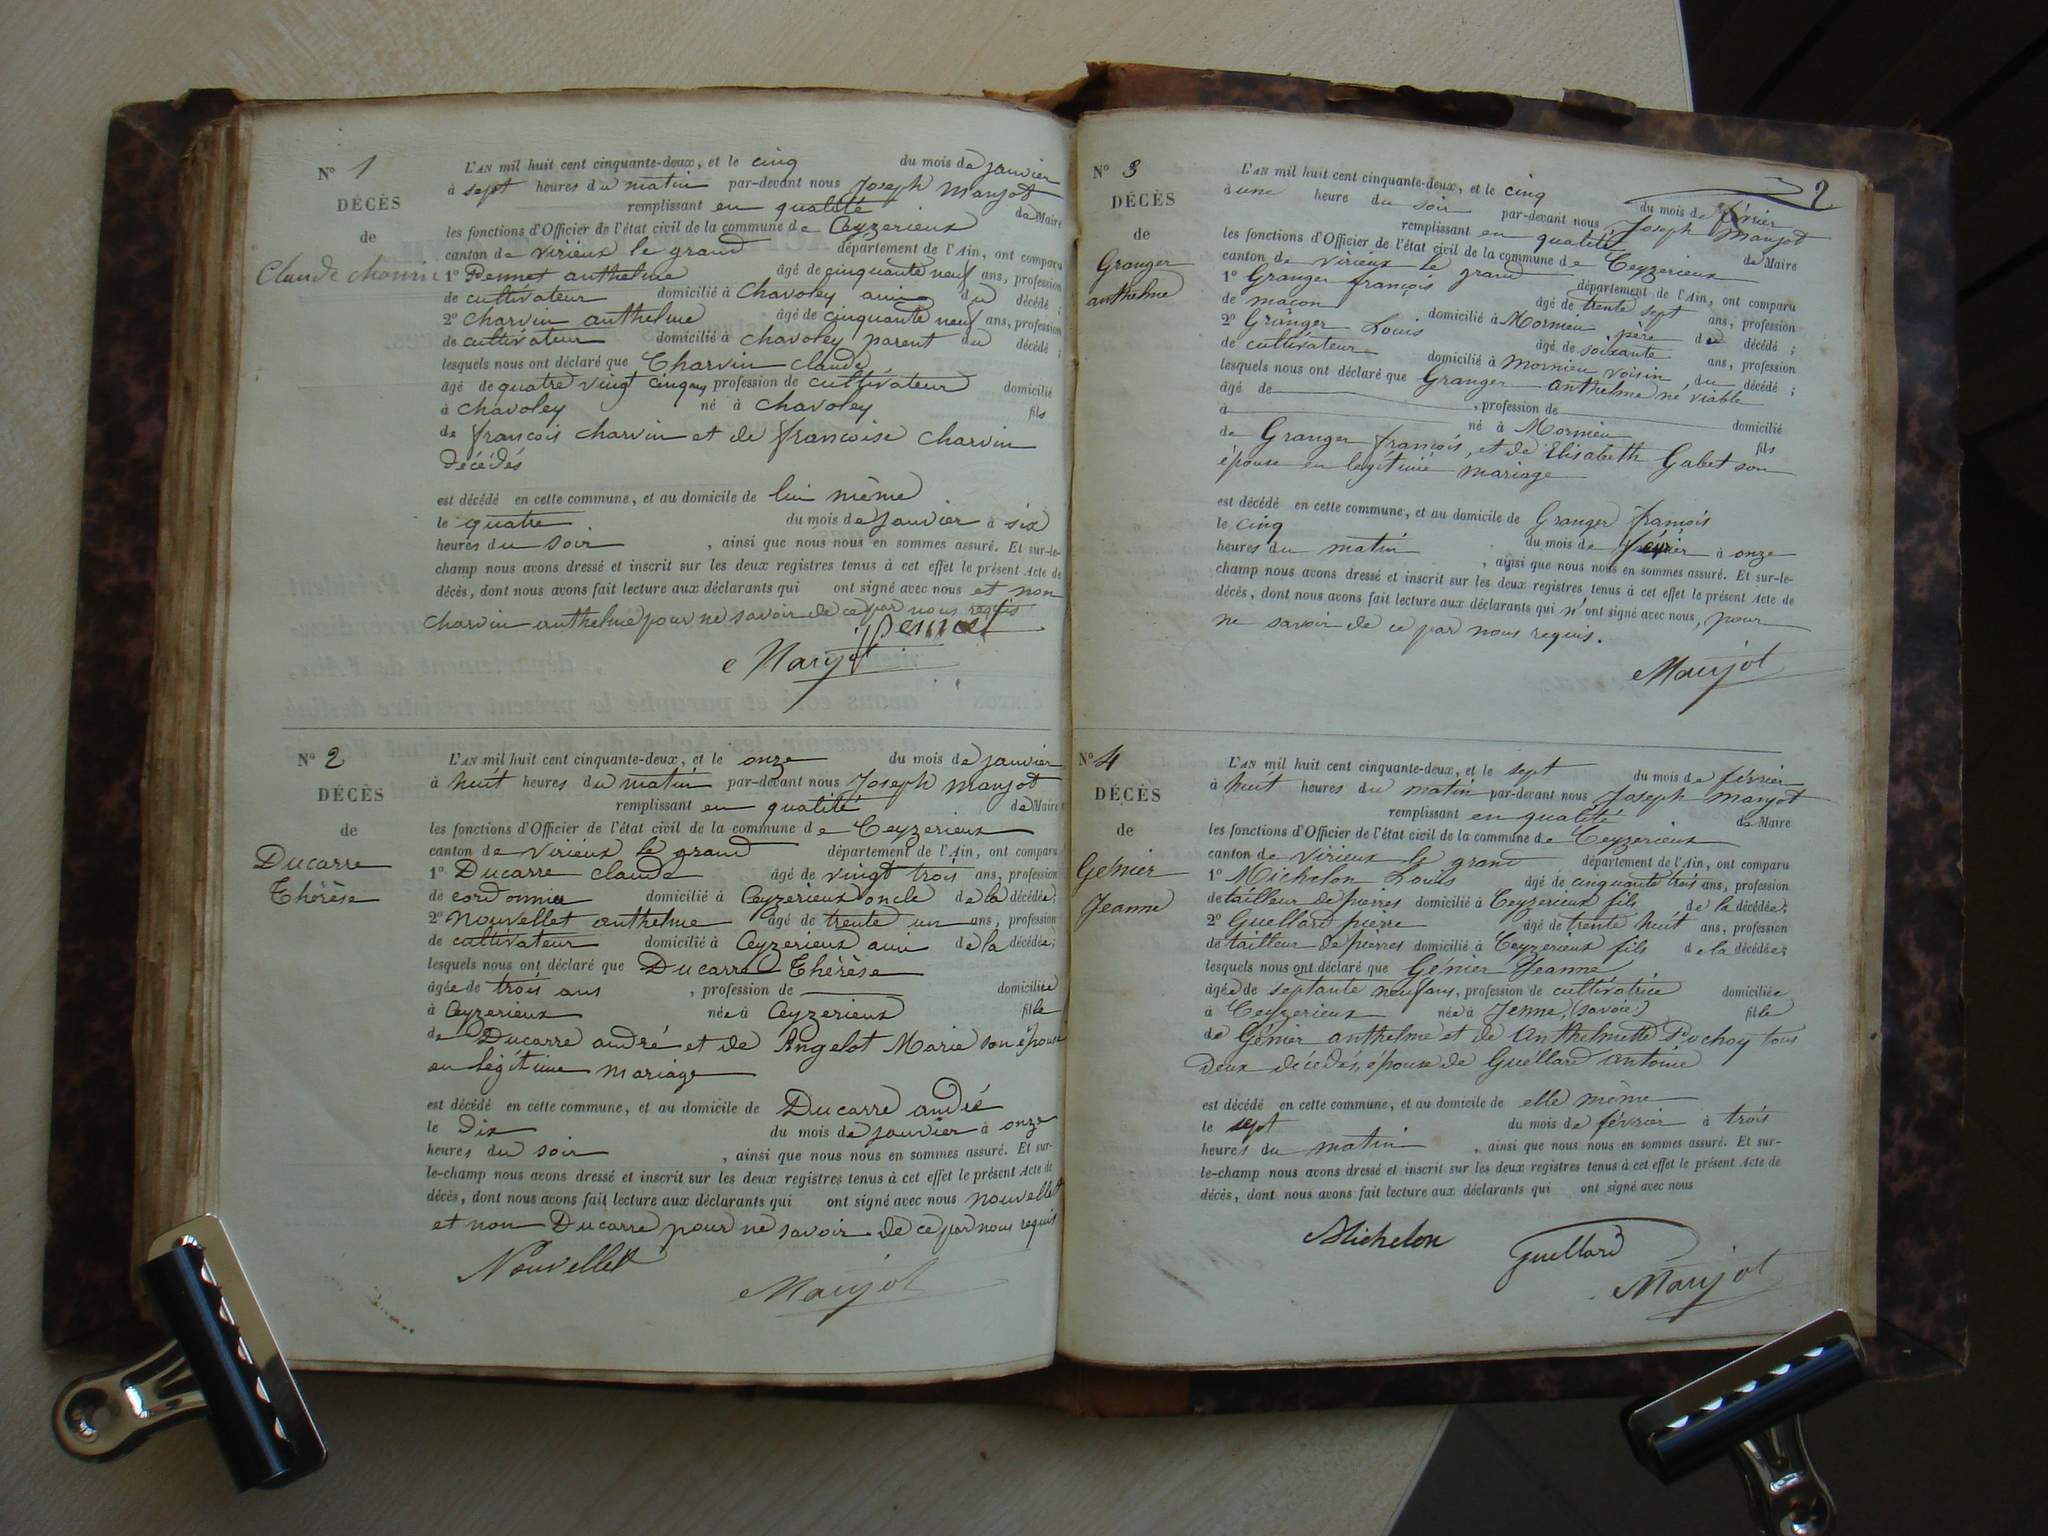 N° 1
DÉCÈS
de
Claude charvin
L'AN mil huit cent cinquante-deux, et le cinq du mois de janvier
à sept heures du matin par-devant nous Joseph Marjot
remplissant en qualité de Maire
les fonctions d'Officier de l'état civil de la commune de Ceyzerieux
canton de virieux le grand département de l'Ain, ont comparu
1° Pennet anthelme âgé de cinquante neuf ans, profession
de cultivateur domicilié à Chavoley ami du décédé ;
2° charvin anthelme âgé de cinquante neuf ans, profession
de cultivateur domicilié à chavoley parent du décédé ;
lesquels nous ont déclaré que Charvin claude
âgé de quatre vingt cinq ans, profession de cultivateur domicilié
à chavoley né à chavoley fils
de françois charvin et de françoise charvin
décédés
est décédé en cette commune, et au domicile de lui même
le quatre du mois de janvier à six
heures du soir , ainsi que nous nous en sommes assuré. Et sur-le-
champ nous avons dressé et inscrit sur les deux registres tenus à cet effet le présent Acte de
décès, dont nous avons fait lecture aux déclarants qui ont signé avec nous et non
charvin anthelme pour ne savoir de ce par nous requis
Pennet
Marjot
N° 2
DÉCÈS
de
Ducarre
Thérèse
L'AN mil huit cent cinquante-deux, et le onze du mois de janvier
à huit heures du matin par-devant nous Joseph marjot
remplissant en qualité de Maire
les fonctions d'Officier de l'état civil de la commune de Ceyzerieux
canton de virieux le grand département de l'Ain, ont comparu
1° Ducarre claude âgé de vingt trois ans, profession
de cordonnier domicilié à Ceyzerieux oncle de la décédée;
2° Nouvellet anthelme âgé de trente un ans, profession
de cultivateur domicilié à Ceyzerieux ami de la décédée;
lesquels nous ont déclaré que Ducarre Thérèse
âgée de trois ans , profession de domiciliée
à Ceyzerieux née à Ceyzerieux fille
de Ducarre andré et de Angelot Marie son épouse
en légitime mariage
est décédé en cette commune, et au domicile de Ducarre andré
le dix du mois de janvier à onze
heures du soir , ainsi que nous nous en sommes assuré. Et sur-
le-champ nous avons dressé et inscrit sur les deux registres tenus à cet effet le présent Acte de
décès, dont nous avons fait lecture aux déclarants qui ont signé avec nous nouvellet
et non Ducarre pour ne savoir de ce par nous requis
Nouvellet
Marjot
2
N° 3
DÉCÈS
de
Granger
anthelme
L'AN mil huit cent cinquante-deux, et le cinq du mois de février
à une heure du soir par-devant nous Joseph Marjot
remplissant en qualité de Maire
les fonctions d'Officier de l'état civil de la commune de Ceyzerieux
canton de virieux le grand département de l'Ain, ont comparu
1° Granger françois âgé de trente sept ans, profession
de maçon domicilié à Mornieu père du décédé ;
2° Granger Louis âgé de soixante ans, profession
de cultivateur domicilié à mornieu voisin du décédé ;
lesquels nous ont déclaré que Granger anthelme né viable
âgé de , profession de domicilié
à né à Mornieu fils
de Granger françois, et de Elisabeth Gabet son
épouse en légitime mariage
est décédé en cette commune, et au domicile de Granger françois
le cinq du mois de février à onze
heures du matin , ainsi que nous nous en sommes assuré. Et sur-le-
champ nous avons dressé et inscrit sur les deux registres tenus à cet effet le présent Acte de
décès, dont nous avons fait lecture aux déclarants qui n'ont signé avec nous, pour
ne savoir de ce par nous requis.
Marjot
N° 4
DÉCÈS
de
Génier
Jeanne
L'AN mil huit cent cinquante-deux, et le sept du mois de février
à huit heures du matin par-devant nous Joseph marjot
remplissant en qualité de Maire
les fonctions d'Officier de l'état civil de la commune de Ceyzerieux
canton de virieux le grand département de l'Ain, ont comparu
1° Michelon Louis âgé de cinquante trois ans, profession
de tailleur de pierres domicilié à Ceyzerieux fils de la décédée;
2° Guellard pierre âgé de trente huit ans, profession
de tailleur de pierres domicilié à Ceyzerieux fils de la décédée;
lesquels nous ont déclaré que Génier Jeanne
âgée de septante neuf ans, profession de cultivatrice domiciliée
à Ceyzerieux née à Jenne (Savoie) fille
de Génier anthelme et de Anthelmette Pochoy tous
Deux décédés, épouse de Guellard antoine
est décédé en cette commune, et au domicile de elle même
le sept du mois de février à trois
heures du matin , ainsi que nous nous en sommes assuré. Et sur-
le-champ nous avons dressé et inscrit sur les deux registres tenus à cet effet le présent Acte de
décès, dont nous avons fait lecture aux déclarants qui ont signé avec nous
Michelon
Guellard
Marjot